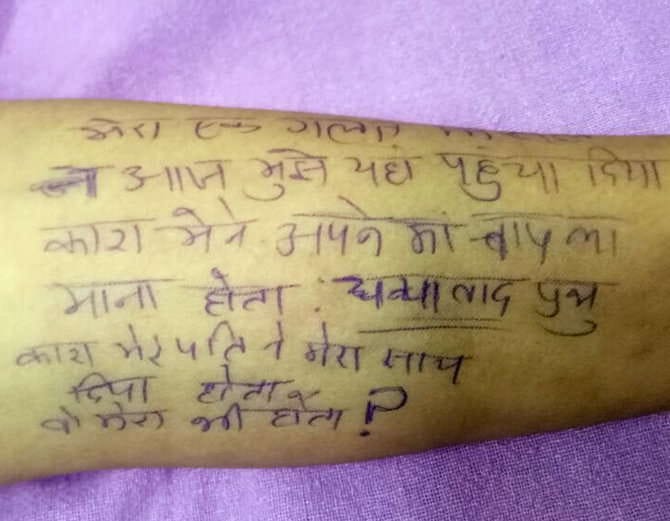 मेरा एक गलत
ने आज मुझे यहां पहुंचा दिया
काश मेने अपने मां बाप का
माना होता . धन्यावाद प्रभु
काश मेरे पति ने मेरा साथ
दिया होता
वो मेरा भी होता ?